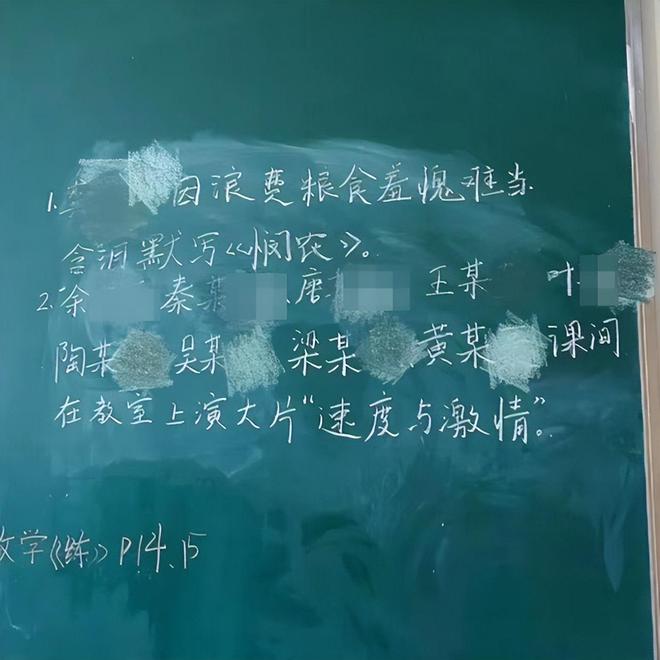 1. 因浪费粮食羞愧难当
含泪默写《悯农》。
2. 余 秦某 、唐 王某 叶
陶某 吴某 梁某 黄某 课间
在教室上演大片“速度与激情”。
数学《练》P14、15